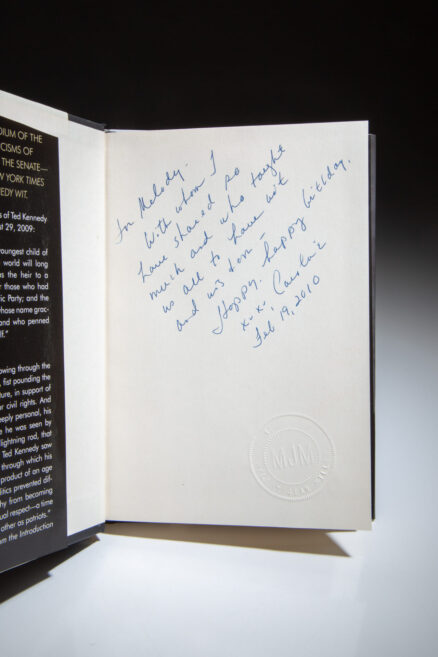 DIUM OF THE
CISMS OF
THE SENATE—
W YORK TIMES
NEDY WIT.
s of Ted Kennedy
st 29, 2009:
youngest child of
world will long
as the heir to a
r those who had
ic Party; and the
whose name grac-
and who penned
f."
owing through the
, fist pounding the
ture, in support of
r civil rights. And
eeply personal, his
e he was seen by
lightning rod, that
Ted Kennedy saw
through which his
product of an age
litics prevented dif-
hy from becoming
ual respect—a time
other as patriots."
om the Introduction
for Melody.
With whom I
have shared so
much and who taught
us all to have wit
and wisdom –
Happy, happy birthday.
x.x.
Feb 19, 2010
MJM